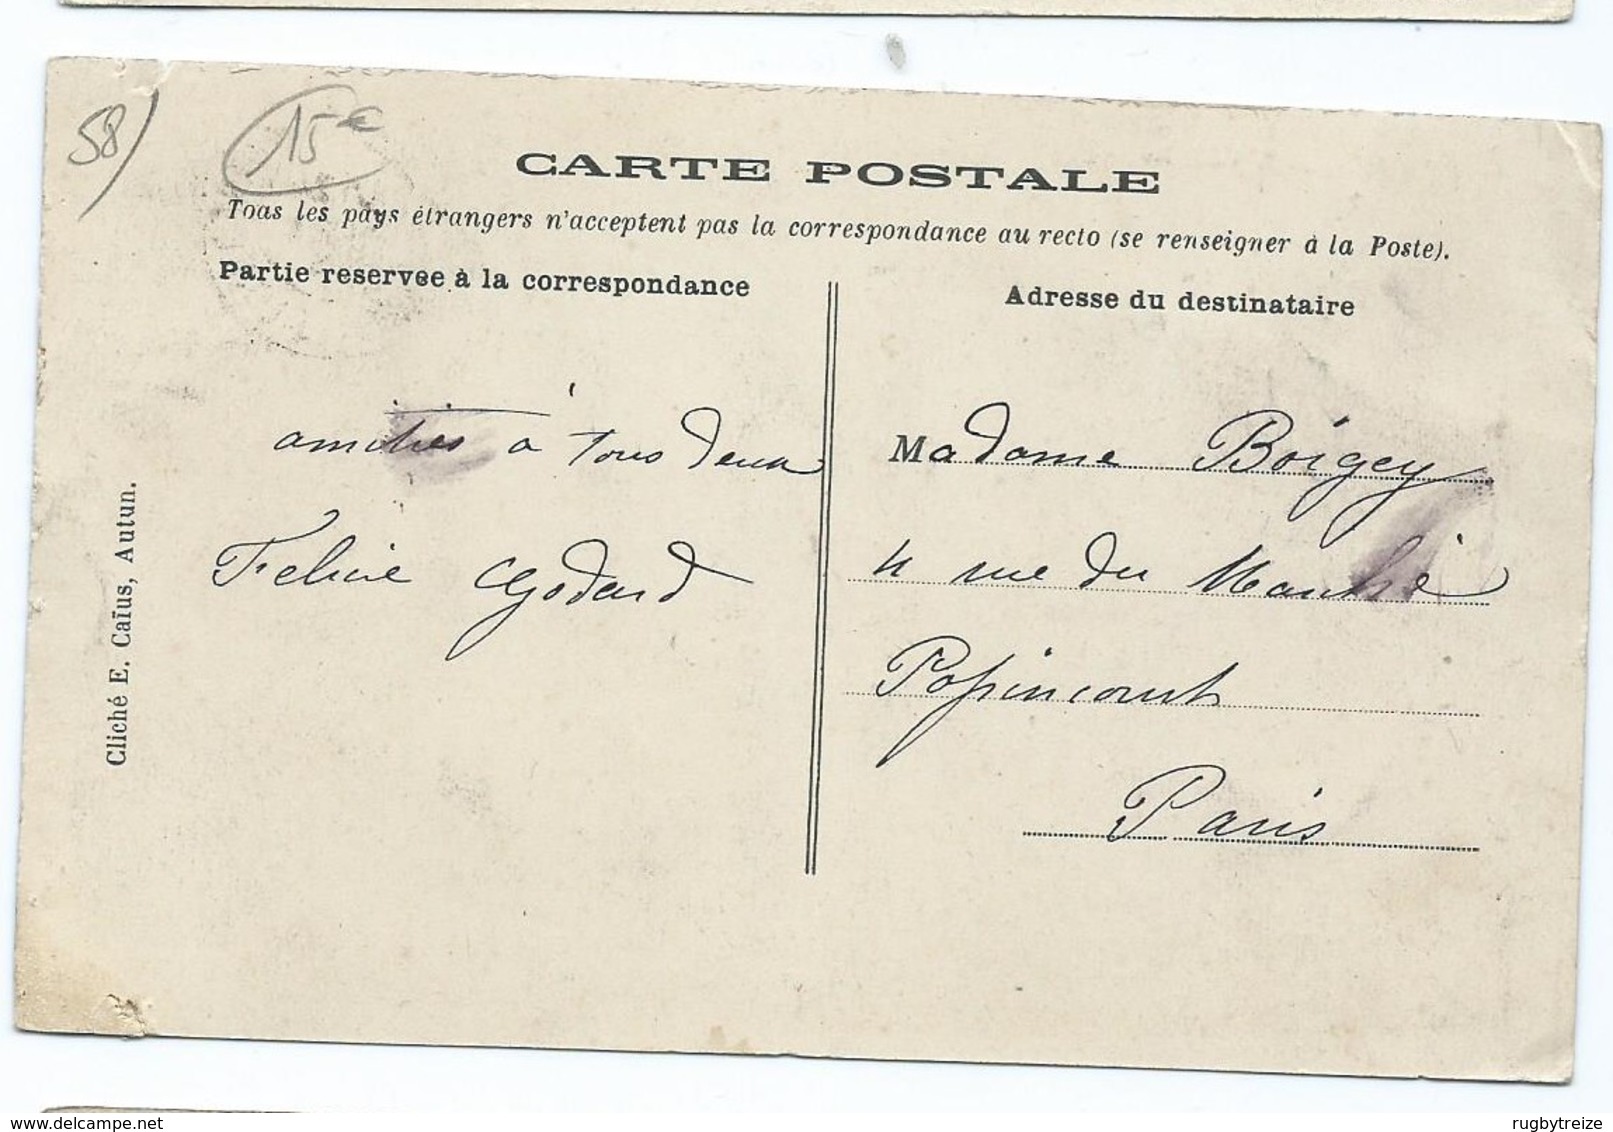 58)
15€
CARTE POSTALE
Tous les pays étrangers n'acceptent pas la correspondance au recto (se renseigner à la Poste).
Partie reservee à la correspondance
Adresse du destinataire
amitiés à tous deux
Feline Godard
Madame Boigey
4 rue du Marché
Popincourt
Paris
Cliché E. Caïus, Autun.
www.delcampe.net
rugbytreize